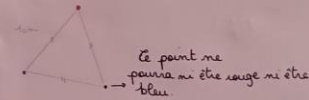 Ce point ne
pourra ni être rouge ni être
bleu.